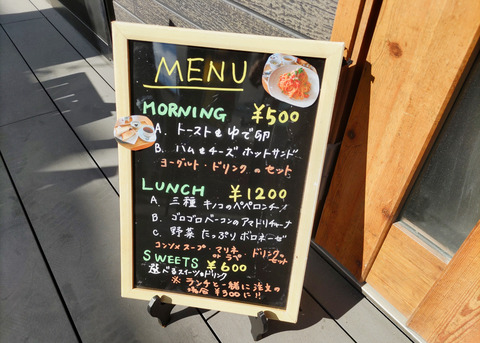 MENU
MORNING ¥500
A. トーストとゆで卵
B. ハムとチーズ ホットサンド
ヨーグルト・ドリンクのセット
LUNCH ¥1200
A. 三種 キノコのペペロンチーノ
B. ゴロゴロベーコンのアマトリチャーナ
C. 野菜たっぷりボロネーゼ
コンソメスープ・マリネ or ラペ ドリンクのセット
SWEETS ¥600
選べるスイーツ&ドリンク
※ ランチと一緒に注文の
場合 ¥300に!!